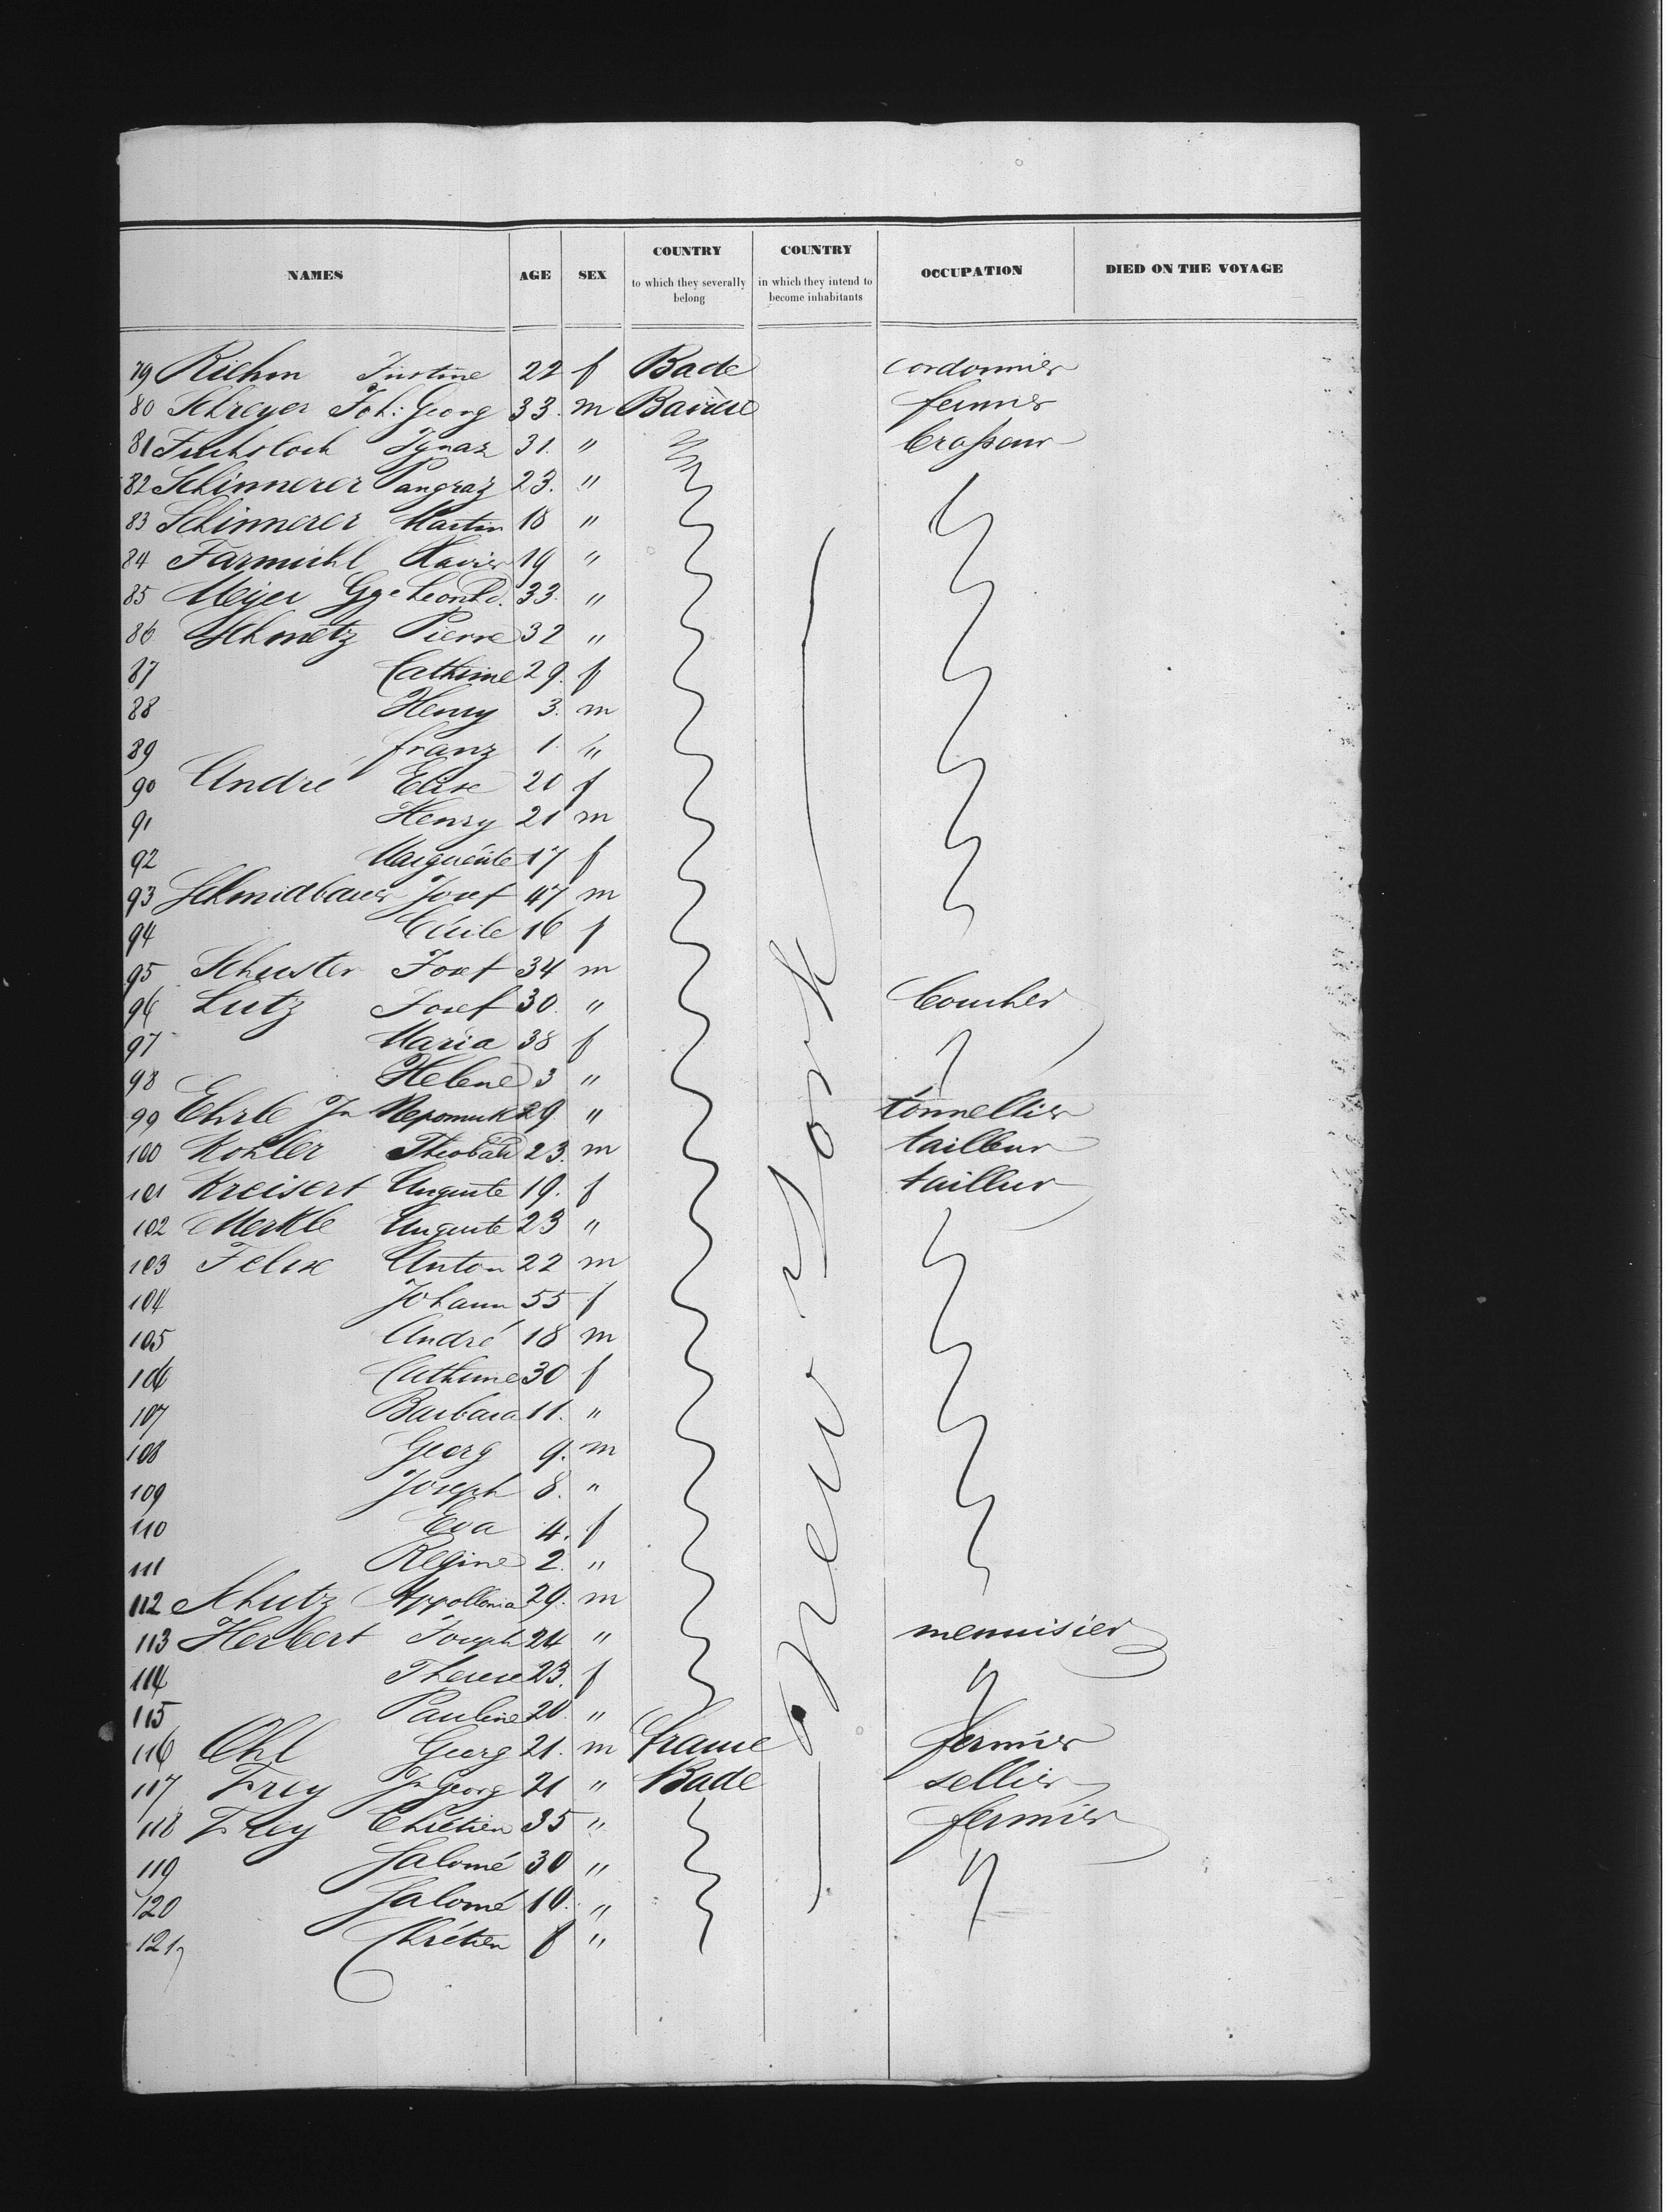 NAMES AGE SEX COUNTRY to which they severally belong COUNTRY in which they intend to become inhabitants OCCUPATION DIED ON THE VOYAGE
79 Riehm Justine 22 f Bade cordonnier
80 Schreyer Joh: Georg 33. m Bavière fermier
81 Fuchsloch Ignaz 31. " brasseur
82 Schinnerer Pangraz 23. "
83 Schinnerer Martin 18 "
84 Farmühl Xavier 19 "
85 Meyer Gge Leonhd. 33. "
86 Schmetz Pierre 32 "
87 Cathrine 29. f
88 Henry 3. m
89 franz 1 "
90 André Elise 20 f
91 Henry 21 m
92 Marguérite 17 f
93 Schmidbauer Josef 47 m
94 Cécile 16 f
95 Schuster Josef 34 m
96 Lutz Josef 30. " boucher
97 Maria 38 f
98 Helene 3 "
99 Ehrle Jn Nepomuk 29 " tonnellier
100 Kohler Theobald 23. m tailleur
101 Kreisert Auguste 19. f tailleur
102 Merkle Auguste 23 "
103 Felix Anton 22 m
104 Johann 55 f
105 André 18 m
106 Cathrine 30 f
107 Barbara 11. "
108 Georg 9. m
109 Joseph 8. "
110 Eva 4. f
111 Regine 2. "
112 Schutz Appollonia 29. m
113 Herbert Joseph 24 " menuisier
114 Therese 23. f
115 Pauline 20 "
116 Ohl Georg 21. m france fermier
117 Frey Jn Georg 21 " Bade sellier
118 Frey Chrétien 35 " fermier
119 Salomé 30 "
120 Salomé 10. "
121 Chrétien 8 "
New-York